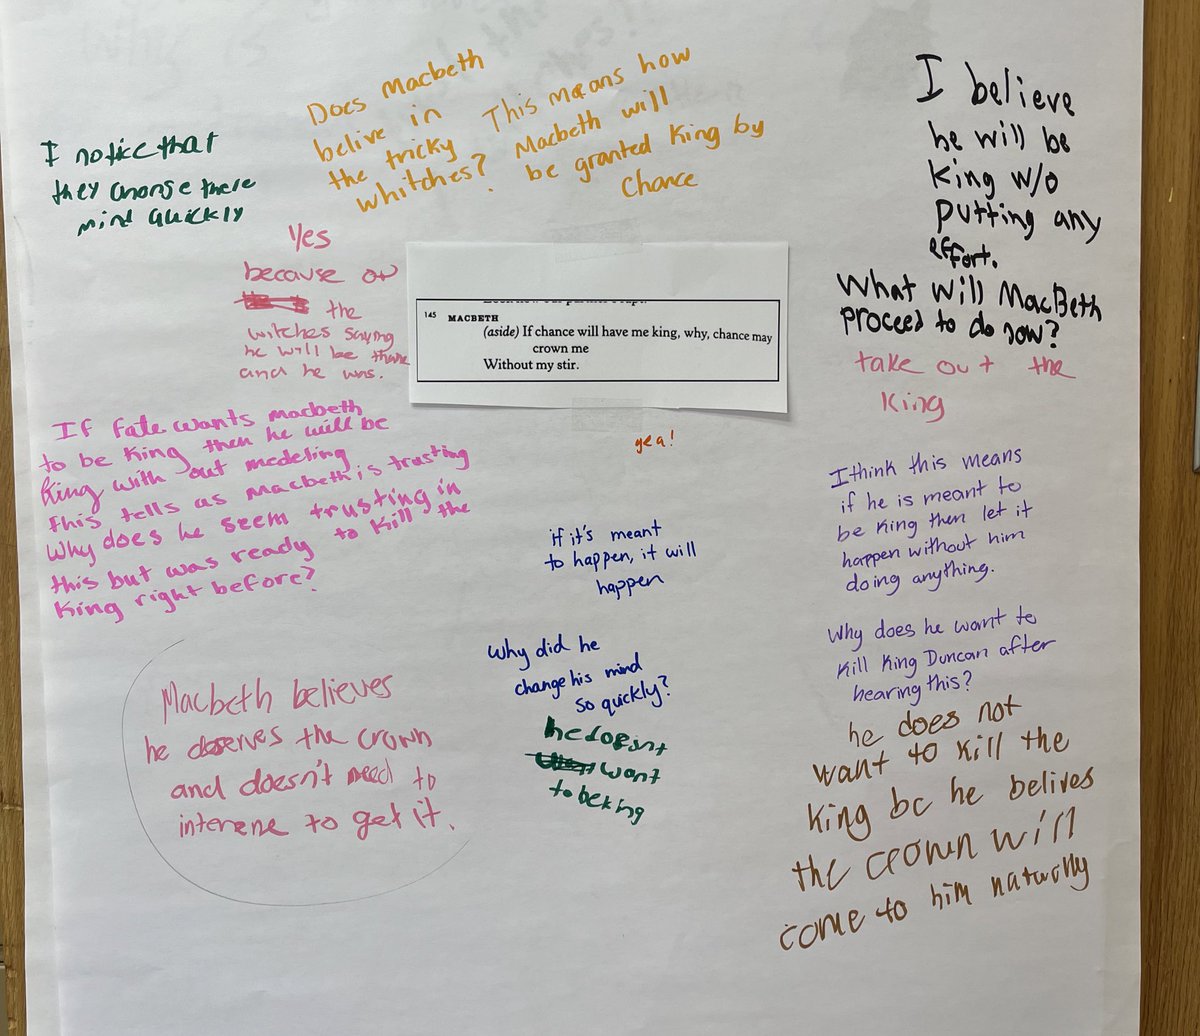 Does Macbeth
belive in
the tricky
whitches?
This means how
Macbeth will
be granted King by
chance
I notice that
they change there
mind quickly
Yes
because of
the
witches saying
he will be thane
and he was.
I believe
he will be
King w/o
putting any
effort.
What will MacBeth
proceed to do now?
take out the
King
145 MACBETH
(aside) If chance will have me king, why, chance may
crown me
Without my stir.
yea!
If fate wants macbeth
to be King then he will be
King with out medeling
this tells as macbeth is trusting
Why does he seem trusting in
this but was ready to kill the
King right before?
if it's meant
to happen, it will
happen
I think this means
if he is meant to
be King then let it
happen without him
doing anything.
Why did he
change his mind
so quickly?
he dosint
want
to be king
Why does he want to
Kill King Duncan after
hearing this?
he does not
want to kill the
King bc he belives
the crown will
come to him naturally
Macbeth believes
he deserves the crown
and doesn't need to
intervene to get it.